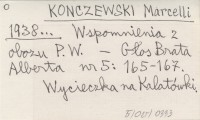 O
KONCZEWSKI Marcelli
1938... Wspomnienia z
obozu P.W. — Głos Brata
Alberta nr 5: 165-167.
Wycieczka na Kalatówki.